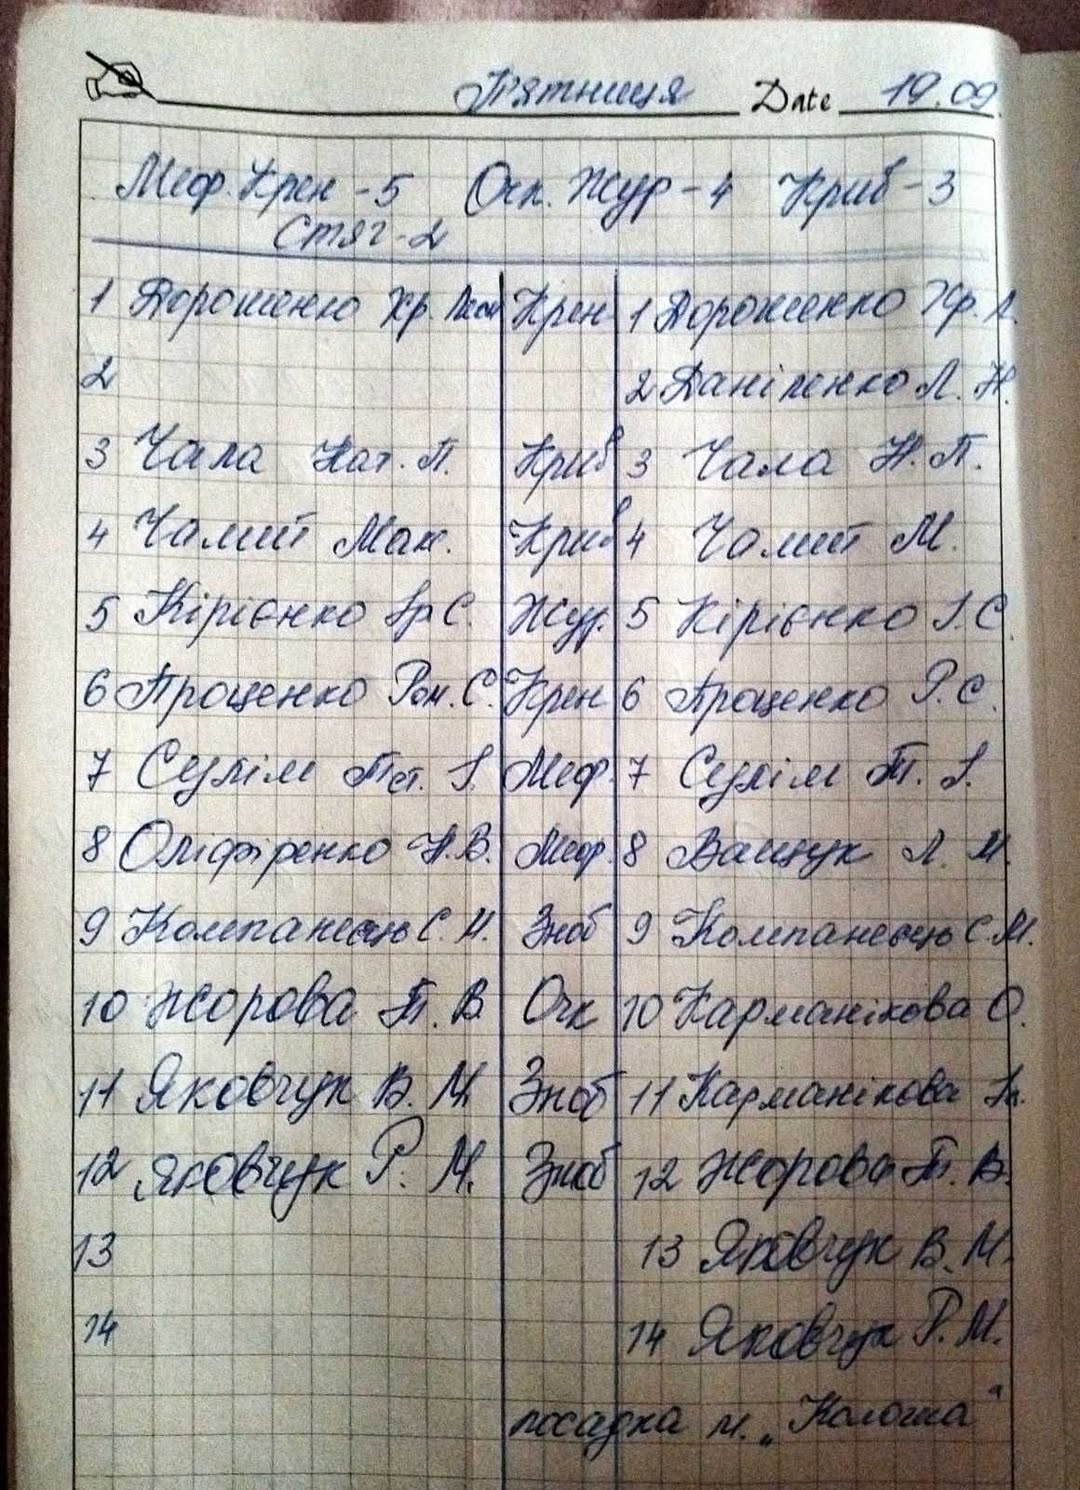 П'ятниця Date 19.09
Меф. Крен - 5 Очк. Жур - 4 Криб - 3
Стяг - 2
1 Дорошенко Хр. Крен 1 Дорошенко Хр. Л.
2 2 Даніленко Л. Н.
3 Чала Нат. П. Криб 3 Чала Н. П.
4 Чалий Мак. Криб 4 Чалий М.
5 Кірієнко Ір. С. Жур. 5 Кірієнко І. С.
6 Проценко Ром. С. Крен 6 Проценко Р. С.
7 Сулім Тет. І. Меф. 7 Сулім Т. І.
8 Оліфіренко Н. В. Меф. 8 Ващук Л. М.
9 Компанець С. М. Зноб 9 Компанець С. М.
10 Жорова Т. В. Очк 10 Карманікова О.
11 Яковчук В. М. Зноб 11 Карманікова
12 Яковчук Р. М. Зноб 12 Жорова Т. В.
13 13 Яковчук В. М.
14 14 Яковчук Р. М.
посадка м. „